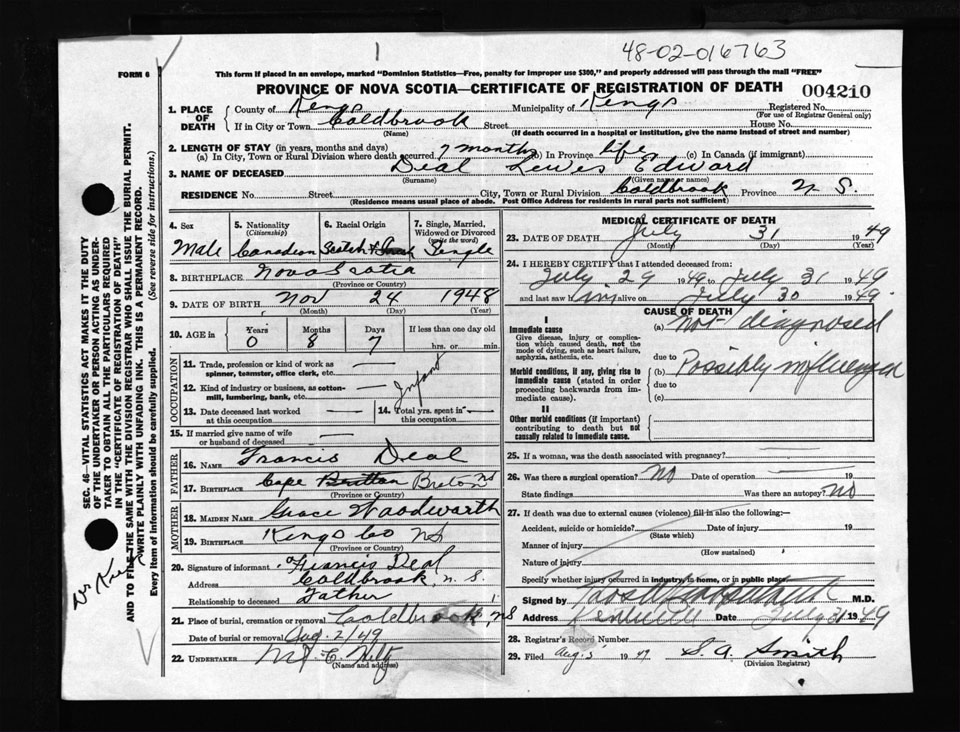 1
48-02-016763
FORM 6
This form if placed in an envelope, marked "Dominion Statistics—Free, penalty for improper use $300," and properly addressed will pass through the mail "FREE"
PROVINCE OF NOVA SCOTIA—CERTIFICATE OF REGISTRATION OF DEATH
004210
1. PLACE OF DEATH
County of Kings Municipality of Kings Registered No.
(For use of Registrar General only)
If in City or Town Coldbrook Street House No.
(Name) (If death occurred in a hospital or institution, give the name instead of street and number)
2. LENGTH OF STAY (in years, months and days)
(a) In City, Town or Rural Division where death occurred 7 months (b) In Province life (c) In Canada (if immigrant)
3. NAME OF DECEASED Deal Lewis Edward
(Surname) (Given name or names)
RESIDENCE No. Street City, Town or Rural Division Coldbrook Province N S.
(Residence means usual place of abode. Post Office Address for residents in rural parts not sufficient)
4. Sex
Male
5. Nationality
(Citizenship)
Canadian
6. Racial Origin
Scotch &
7. Single, Married, Widowed or Divorced
(write the word)
Single
8. BIRTHPLACE Nova Scotia
(Province or Country)
9. DATE OF BIRTH Nov 24 1948
(Month) (Day) (Year)
10. AGE in
Years Months Days If less than one day old
0 8 7 hrs. or min.
OCCUPATION
11. Trade, profession or kind of work as spinner, teamster, office clerk, etc. —
12. Kind of industry or business, as cotton-mill, lumbering, bank, etc. Infant
13. Date deceased last worked at this occupation —
14. Total yrs. spent in this occupation —
15. If married give name of wife or husband of deceased —
FATHER
16. NAME Francis Deal
17. BIRTHPLACE Cape Britton Breton NS
(Province or Country)
MOTHER
18. MAIDEN NAME Grace Woodwarth
19. BIRTHPLACE Kings Co NS
(Province or Country)
20. Signature of informant Francis Deal
Address Coldbrook, N. S.
Relationship to deceased Father
21. Place of burial, cremation or removal Coldbrook, NS
Date of burial or removal Aug. 2/49
22. UNDERTAKER
(Name and address)
MEDICAL CERTIFICATE OF DEATH
23. DATE OF DEATH July 31 1949
(Month) (Day) (Year)
24. I HEREBY CERTIFY that I attended deceased from:
July 29 1949 to July 31 1949
and last saw him alive on July 30 1949.
CAUSE OF DEATH
I
Immediate cause
Give disease, injury or complication which caused death, not the mode of dying, such as heart failure, asphyxia, asthenia, etc.
(a) not diagnosed
due to
Morbid conditions, if any, giving rise to immediate cause (stated in order proceeding backwards from immediate cause).
(b) Possibly influenza
due to
(c)
II
Other morbid conditions (if important) contributing to death but not causally related to immediate cause.
25. If a woman, was the death associated with pregnancy? —
26. Was there a surgical operation? No Date of operation — 19
State findings Was there an autopsy? No
27. If death was due to external causes (violence) fill in also the following:—
Accident, suicide or homicide? Date of injury 19
(State which)
Manner of injury
(How sustained)
Nature of injury
Specify whether injury occurred in industry, in home, or in public place
Signed by M.D.
Address Kentville Date July 31 1949
28. Registrar's Record Number
29. Filed Aug. 5 1949 S. A. Smith
(Division Registrar)
SEC. 46—VITAL STATISTICS ACT MAKES IT THE DUTY
OF THE UNDERTAKER OR PERSON ACTING AS UNDER-
TAKER TO OBTAIN ALL THE PARTICULARS REQUIRED
IN THE "CERTIFICATE OF REGISTRATION OF DEATH"
AND TO FILE THE SAME WITH THE DIVISION REGISTRAR WHO SHALL ISSUE THE BURIAL PERMIT.
WRITE PLAINLY WITH UNFADING INK. THIS IS A PERMANENT RECORD.
Every item of information should be carefully supplied. (See reverse side for instructions.)